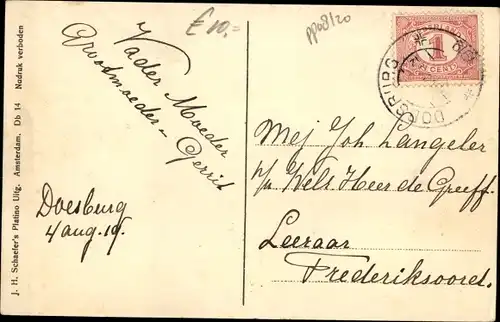 £ 10,=
pp08/20
J. H. Schaefer's Platino Uitg. Amsterdam. Db 14 Nadruk verboden
Vader Moeder
Grootmoeder
Gerrit
Doesburg
4 aug. 19.
NEDERLAND
1
CENT
DOESBURG
Mej Joh Langeler
p/a Wels. Heer de Greeff.
Leeraar
Frederiksoord.